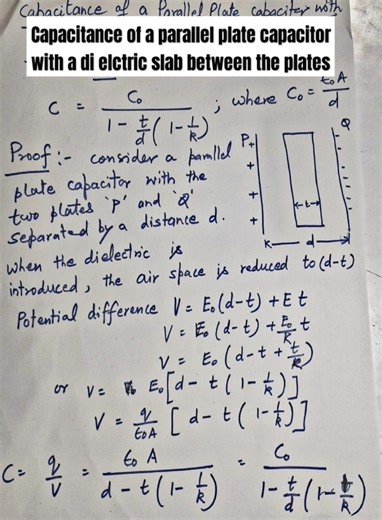 Capacitance of a Parallel Plate capacitor with
Capacitance of a parallel plate capacitor
with a di elctric slab between the plates
C = C₀ / (1 - t/d (1 - 1/K)) ; where C₀ = ε₀A/d
Proof :- consider a parallel
plate capacitor with the
two plates 'P' and 'Q'
separated by a distance d.
P + + + + Q
t
K d
when the dielectric is
introduced, the air space is reduced to (d-t)
Potential difference V = E₀(d-t) + E t
V = E₀(d-t) + E₀/K t
V = E₀(d-t + t/K)
or V = E₀[d - t(1 - 1/K)]
V = q/ε₀A [d - t(1 - 1/K)]
C = q/V = ε₀ A / (d - t(1 - 1/K)) = C₀ / (1 - t/d (1 - 1/K))